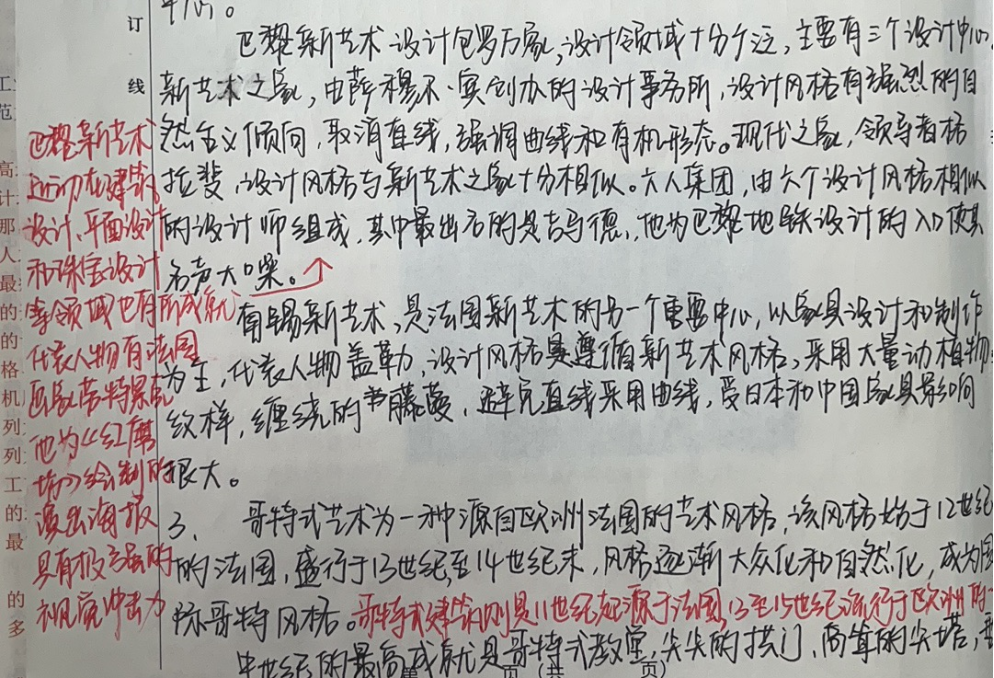 订
线
巴黎新艺术设计包罗万象,设计领域十分广泛,主要有三个设计中心,
新艺术之家,由萨穆尔·宾创办的设计事务所,设计风格有强烈的自
然主义倾向,取消直线,强调曲线和有机形态。现代之家,领导者格
拉斐,设计风格与新艺术之家十分相似。六人集团,由六个设计风格相似
的设计师组成,其中最出名的是吉马德,他为巴黎地铁设计的入口使其
名声大噪。
南锡新艺术,是法国新艺术的另一个重要中心,以家具设计和制作
为主,代表人物盖勒,设计风格遵循新艺术风格,采用大量动植物
纹样,缠绕的藤蔓,避免直线采用曲线,受日本和中国家具影响
很大。
3、哥特式艺术为一种源自欧洲法国的艺术风格,该风格始于12世纪
的法国,盛行于13世纪至14世纪末,风格逐渐大众化和自然化,成为国
际哥特风格。哥特式建筑则是11世纪起源于法国,13至15世纪流行于欧洲的
中世纪的最高成就是哥特式教堂,尖尖的拱门,高耸的尖塔,
巴黎新艺术
运动在建筑
设计、平面设计
和珠宝设计
等领域也有所成就
代表人物有法国
画家劳特累克
他为《红磨
坊》绘制的
演出海报
具有极强的
视觉冲击力
工
范
高
计
那
人
最
的
的
格
机
列
列
工
的
最
的
多
页(共 页)